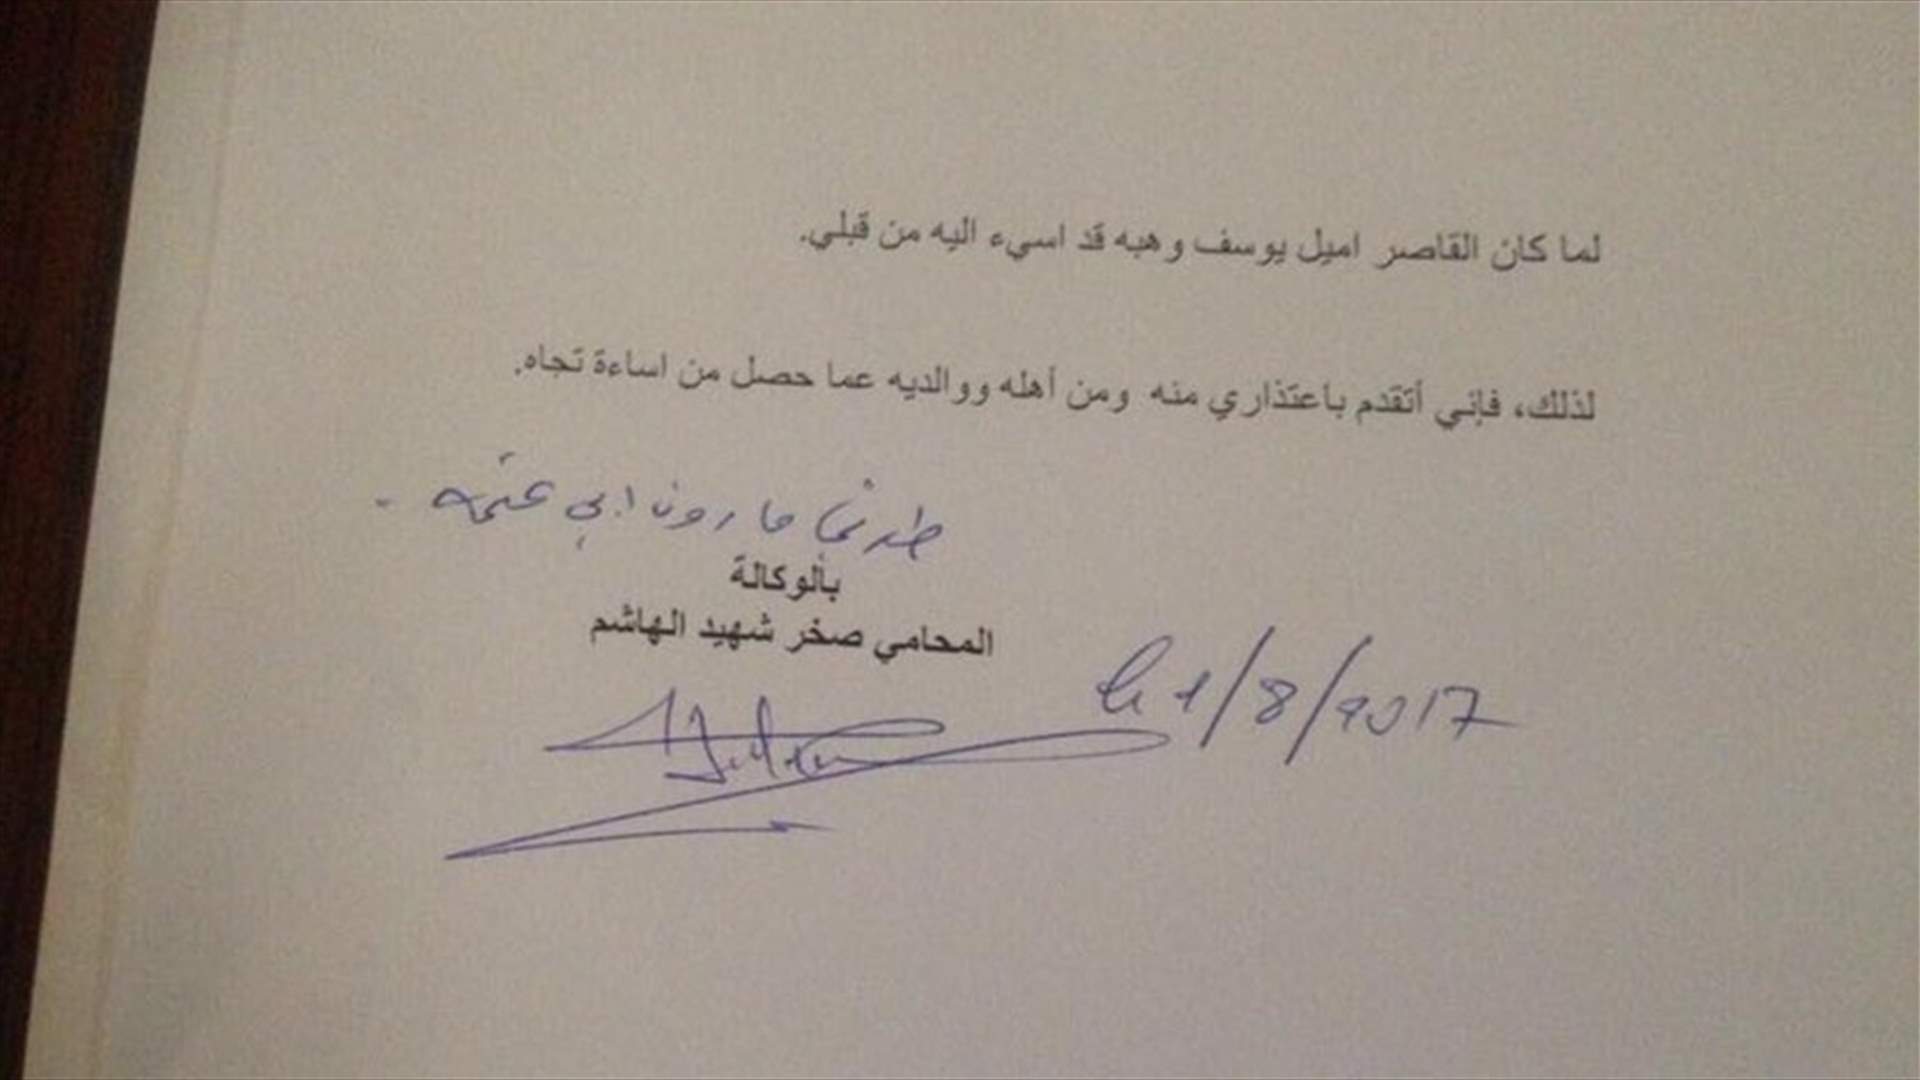 لما كان القاصر اميل يوسف وهبه قد اسيء اليه من قبلي.
لذلك، فإني أتقدم باعتذاري منه ومن أهله ووالديه عما حصل من اساءة تجاه.
مارون ابي
بالوكالة
المحامي صخر شهيد الهاشم
le 1/8/2017